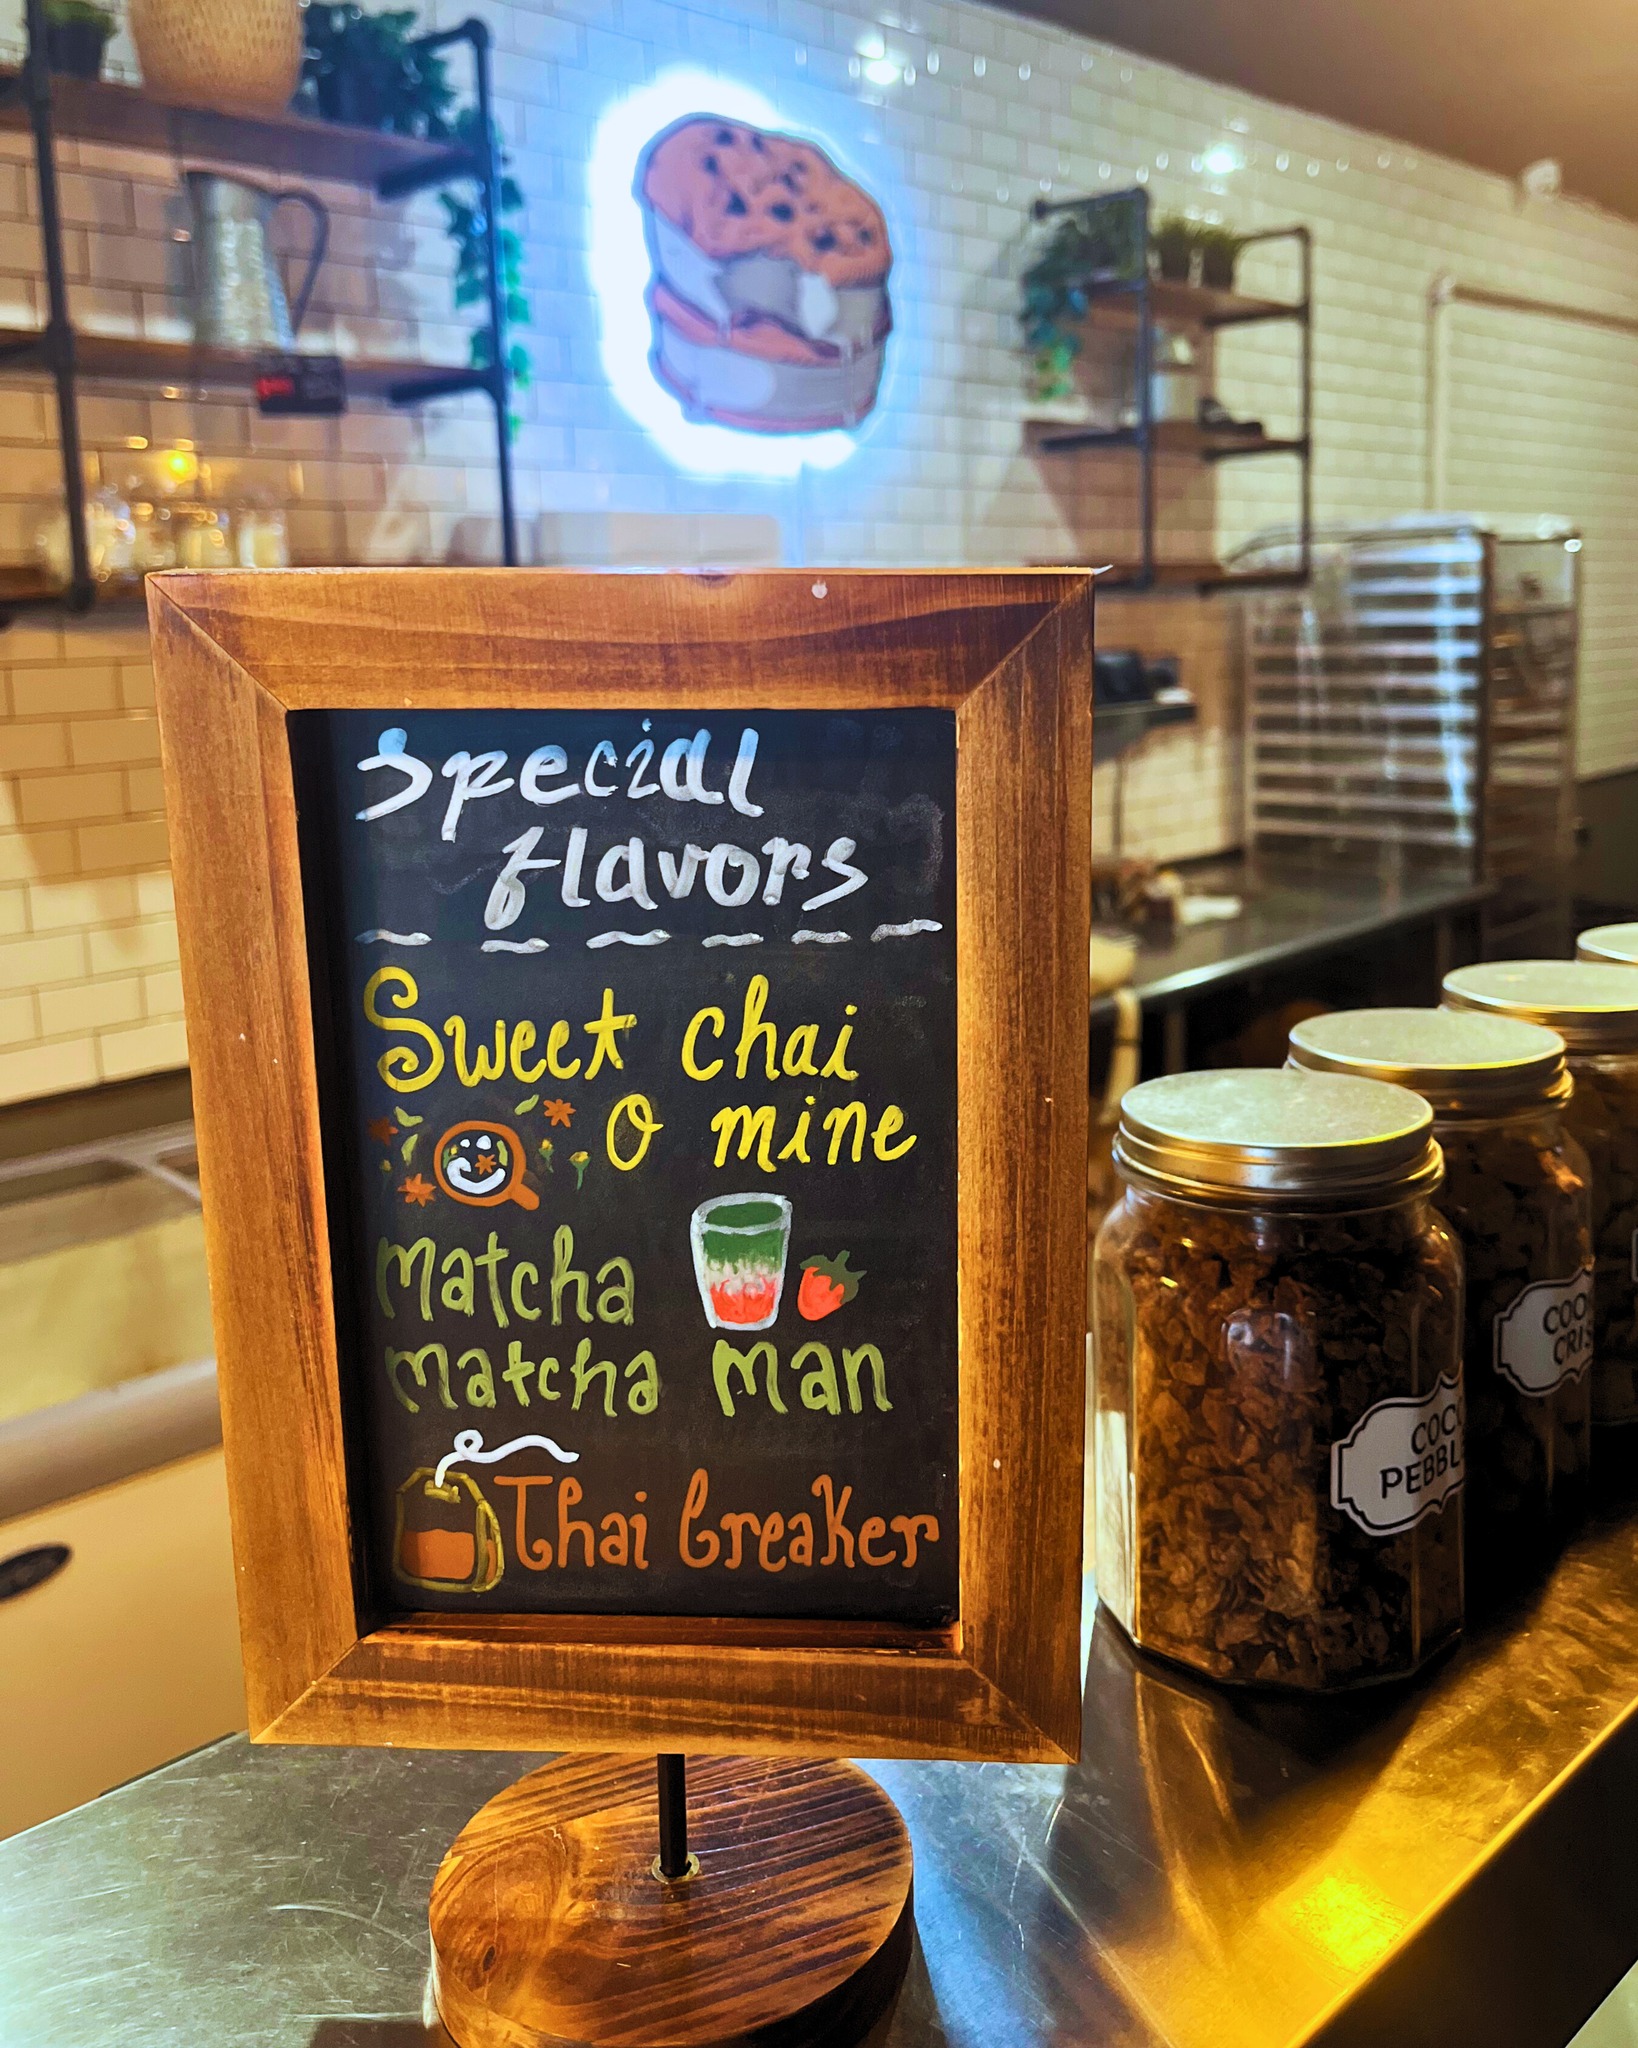 Special
flavors
Sweet chai
O mine
Matcha
matcha man
Thai breaker
COC
PEBBL
COCO
CRIS